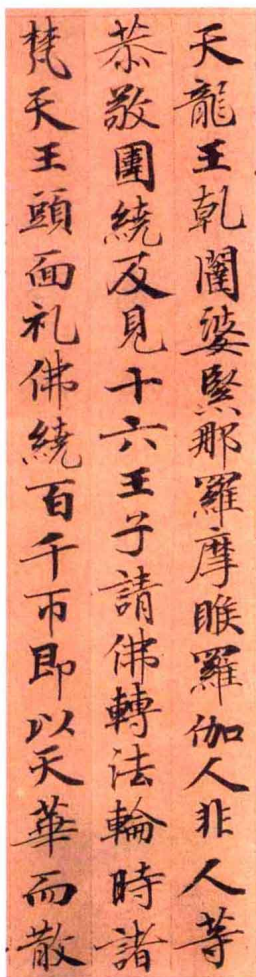 天龍王乾闥婆緊那羅摩睺羅伽人非人等
恭敬圍繞及見十六王子請佛轉法輪時諸
梵天王頭面礼佛繞百千帀即以天華而散